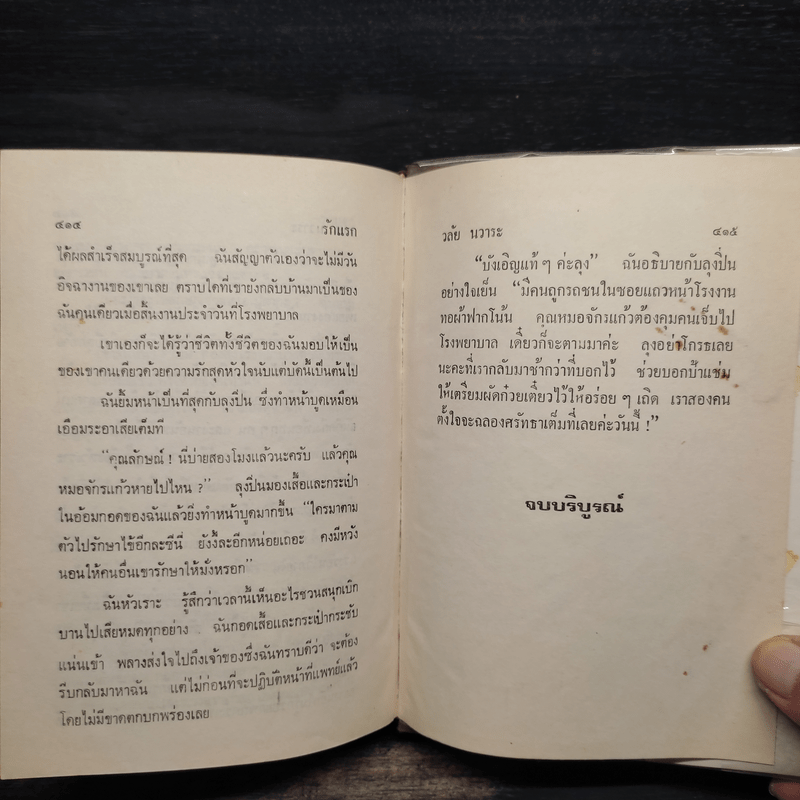 ๔๑๔ รักแรก
ได้ผลสำเร็จสมบูรณ์ที่สุด ฉันสัญญาตัวเองว่าจะไม่มีวัน
อิจฉางานของเขาเลย ตราบใดที่เขายังกลับบ้านมาเป็นของ
ฉันคนเดียวเมื่อสิ้นงานประจำวันที่โรงพยาบาล
เขาเองก็จะได้รู้ว่าชีวิตทั้งชีวิตของฉันมอบให้เป็น
ของเขาคนเดียวด้วยความรักสุดหัวใจนับแต่บัดนี้เป็นต้นไป
ฉันยิ้มหน้าเป็นที่สุดกับลุงปื่น ซึ่งทำหน้าบูดเหมือน
เอือมระอาเสียเต็มที
“คุณลักษณ์ ! นี่บ่ายสองโมงแล้วนะครับ แล้วคุณ
หมอจักรแก้วหายไปไหน ?” ลุงปื่นมองเสื้อและกระเป๋า
ในอ้อมกอดของฉันแล้วยิ่งทำหน้าบูดมากขึ้น “ใครมาตาม
ตัวไปรักษาไข้อีกละซีนี่ ยังงี้ละอีกหน่อยเถอะ คงมีหวัง
นอนให้คนอื่นเขารักษาให้มั่งหรอก”
ฉันหัวเราะ รู้สึกว่าเวลานี้เห็นอะไรชวนสนุกเบิก
บานไปเสียหมดทุกอย่าง ฉันกอดเสื้อและกระเป๋ากระชับ
แน่นเข้า พลางส่งใจไปถึงเจ้าของซึ่งฉันทราบดีว่า จะต้อง
รีบกลับมาหาฉัน แต่ไม่ก่อนที่จะปฏิบัติหน้าที่แพทย์แล้ว
โดยไม่มีขาดตกบกพร่องเลย
วลัย นวาระ ๔๑๕
“บังเอิญแท้ ๆ ค่ะลุง” ฉันอธิบายกับลุงปื่น
อย่างใจเย็น “มีคนถูกรถชนในซอยแถวหน้าโรงงาน
ทอผ้าฟากโน้น คุณหมอจักรแก้วต้องคุมคนเจ็บไป
โรงพยาบาล เดี๋ยวก็จะตามมาค่ะ ลุงอย่าโกรธเลย
นะคะที่เรากลับมาช้ากว่าที่บอกไว้ ช่วยบอกป้าแช่ม
ให้เตรียมผัดก๋วยเตี๋ยวไว้ให้อร่อย ๆ เถิด เราสองคน
ตั้งใจจะฉลองศรัทธาเต็มที่เลยค่ะวันนี้ !”
จบบริบูรณ์